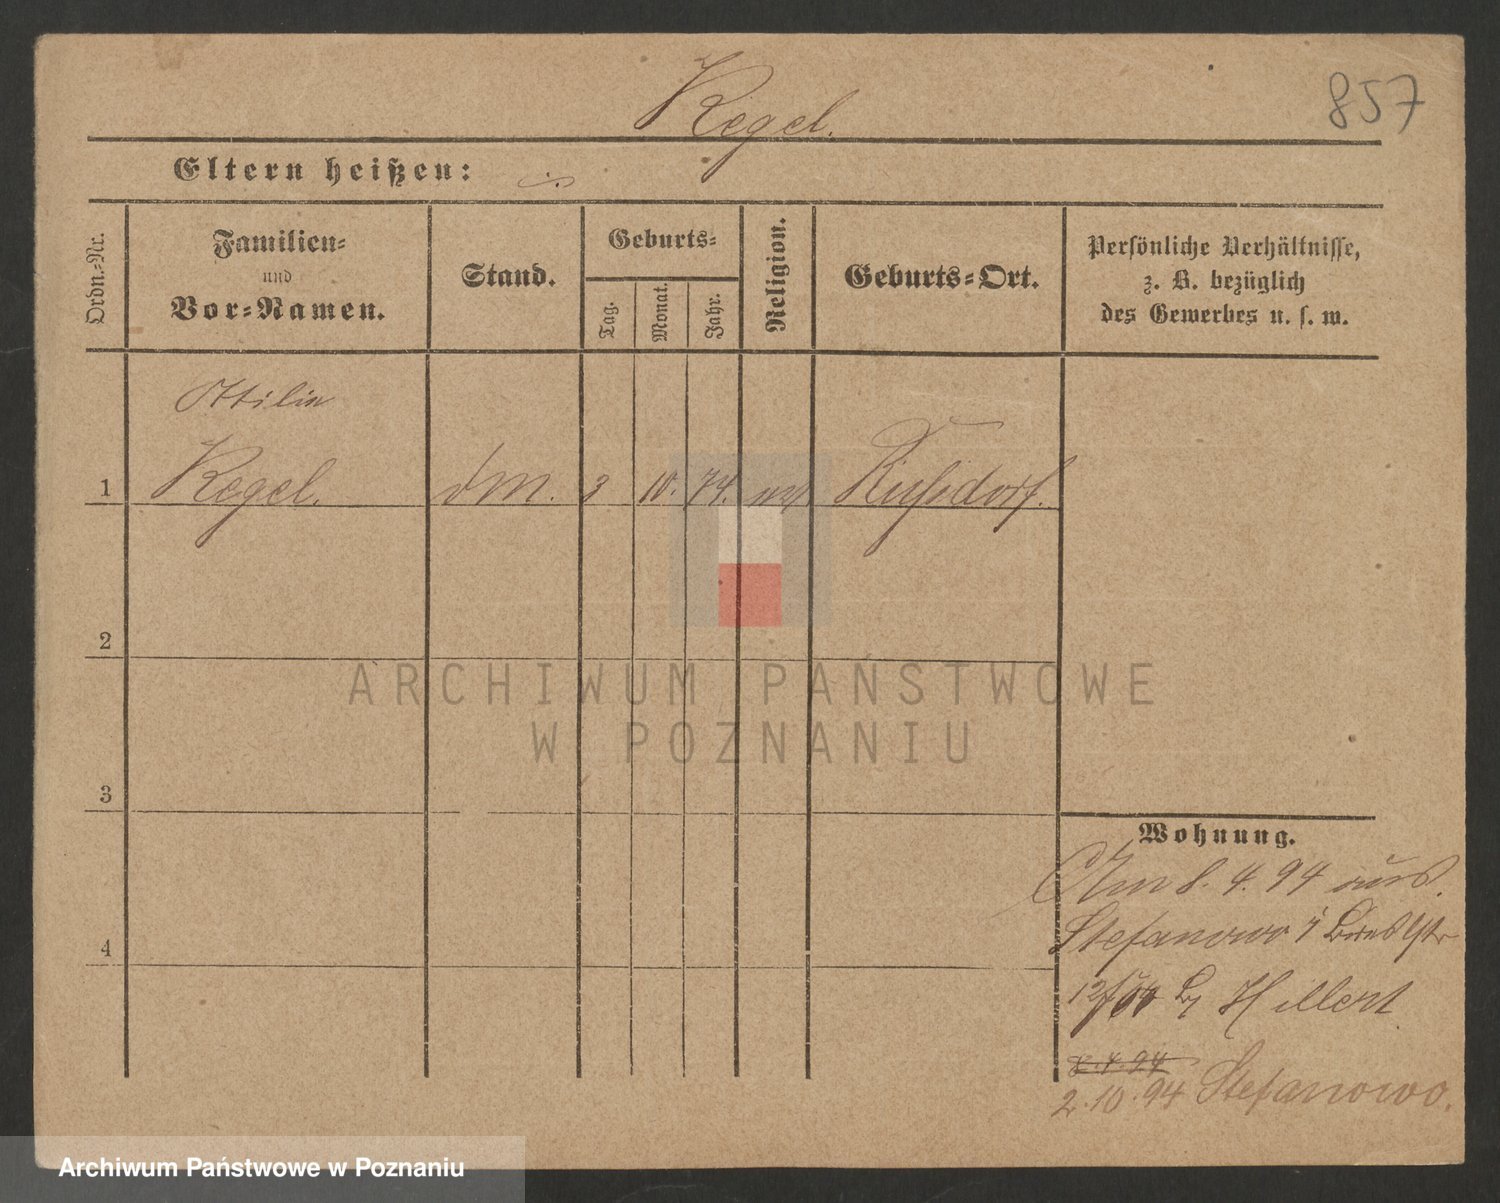 Kegel.
857
Eltern heißen: ./.
Ordn.-Nr.
Familien-
und
Vor-Namen.
Stand.
Geburts-
Tag.
Monat.
Jahr.
Religion.
Geburts-Ort.
Persönliche Verhältnisse,
z. B. bezüglich
des Gewerbes u. s. w.
Ottilie
1 Kegel. dM. 3 10. 74. Rußdorf.
2
3
4
Wohnung.
8. 4. 94 aus.
Stefanowo
Hillert
8.4.94
2.10.94 Stefanowo.
ARCHIWUM PAŃSTWOWE
W POZNANIU
Archiwum Państwowe w Poznaniu